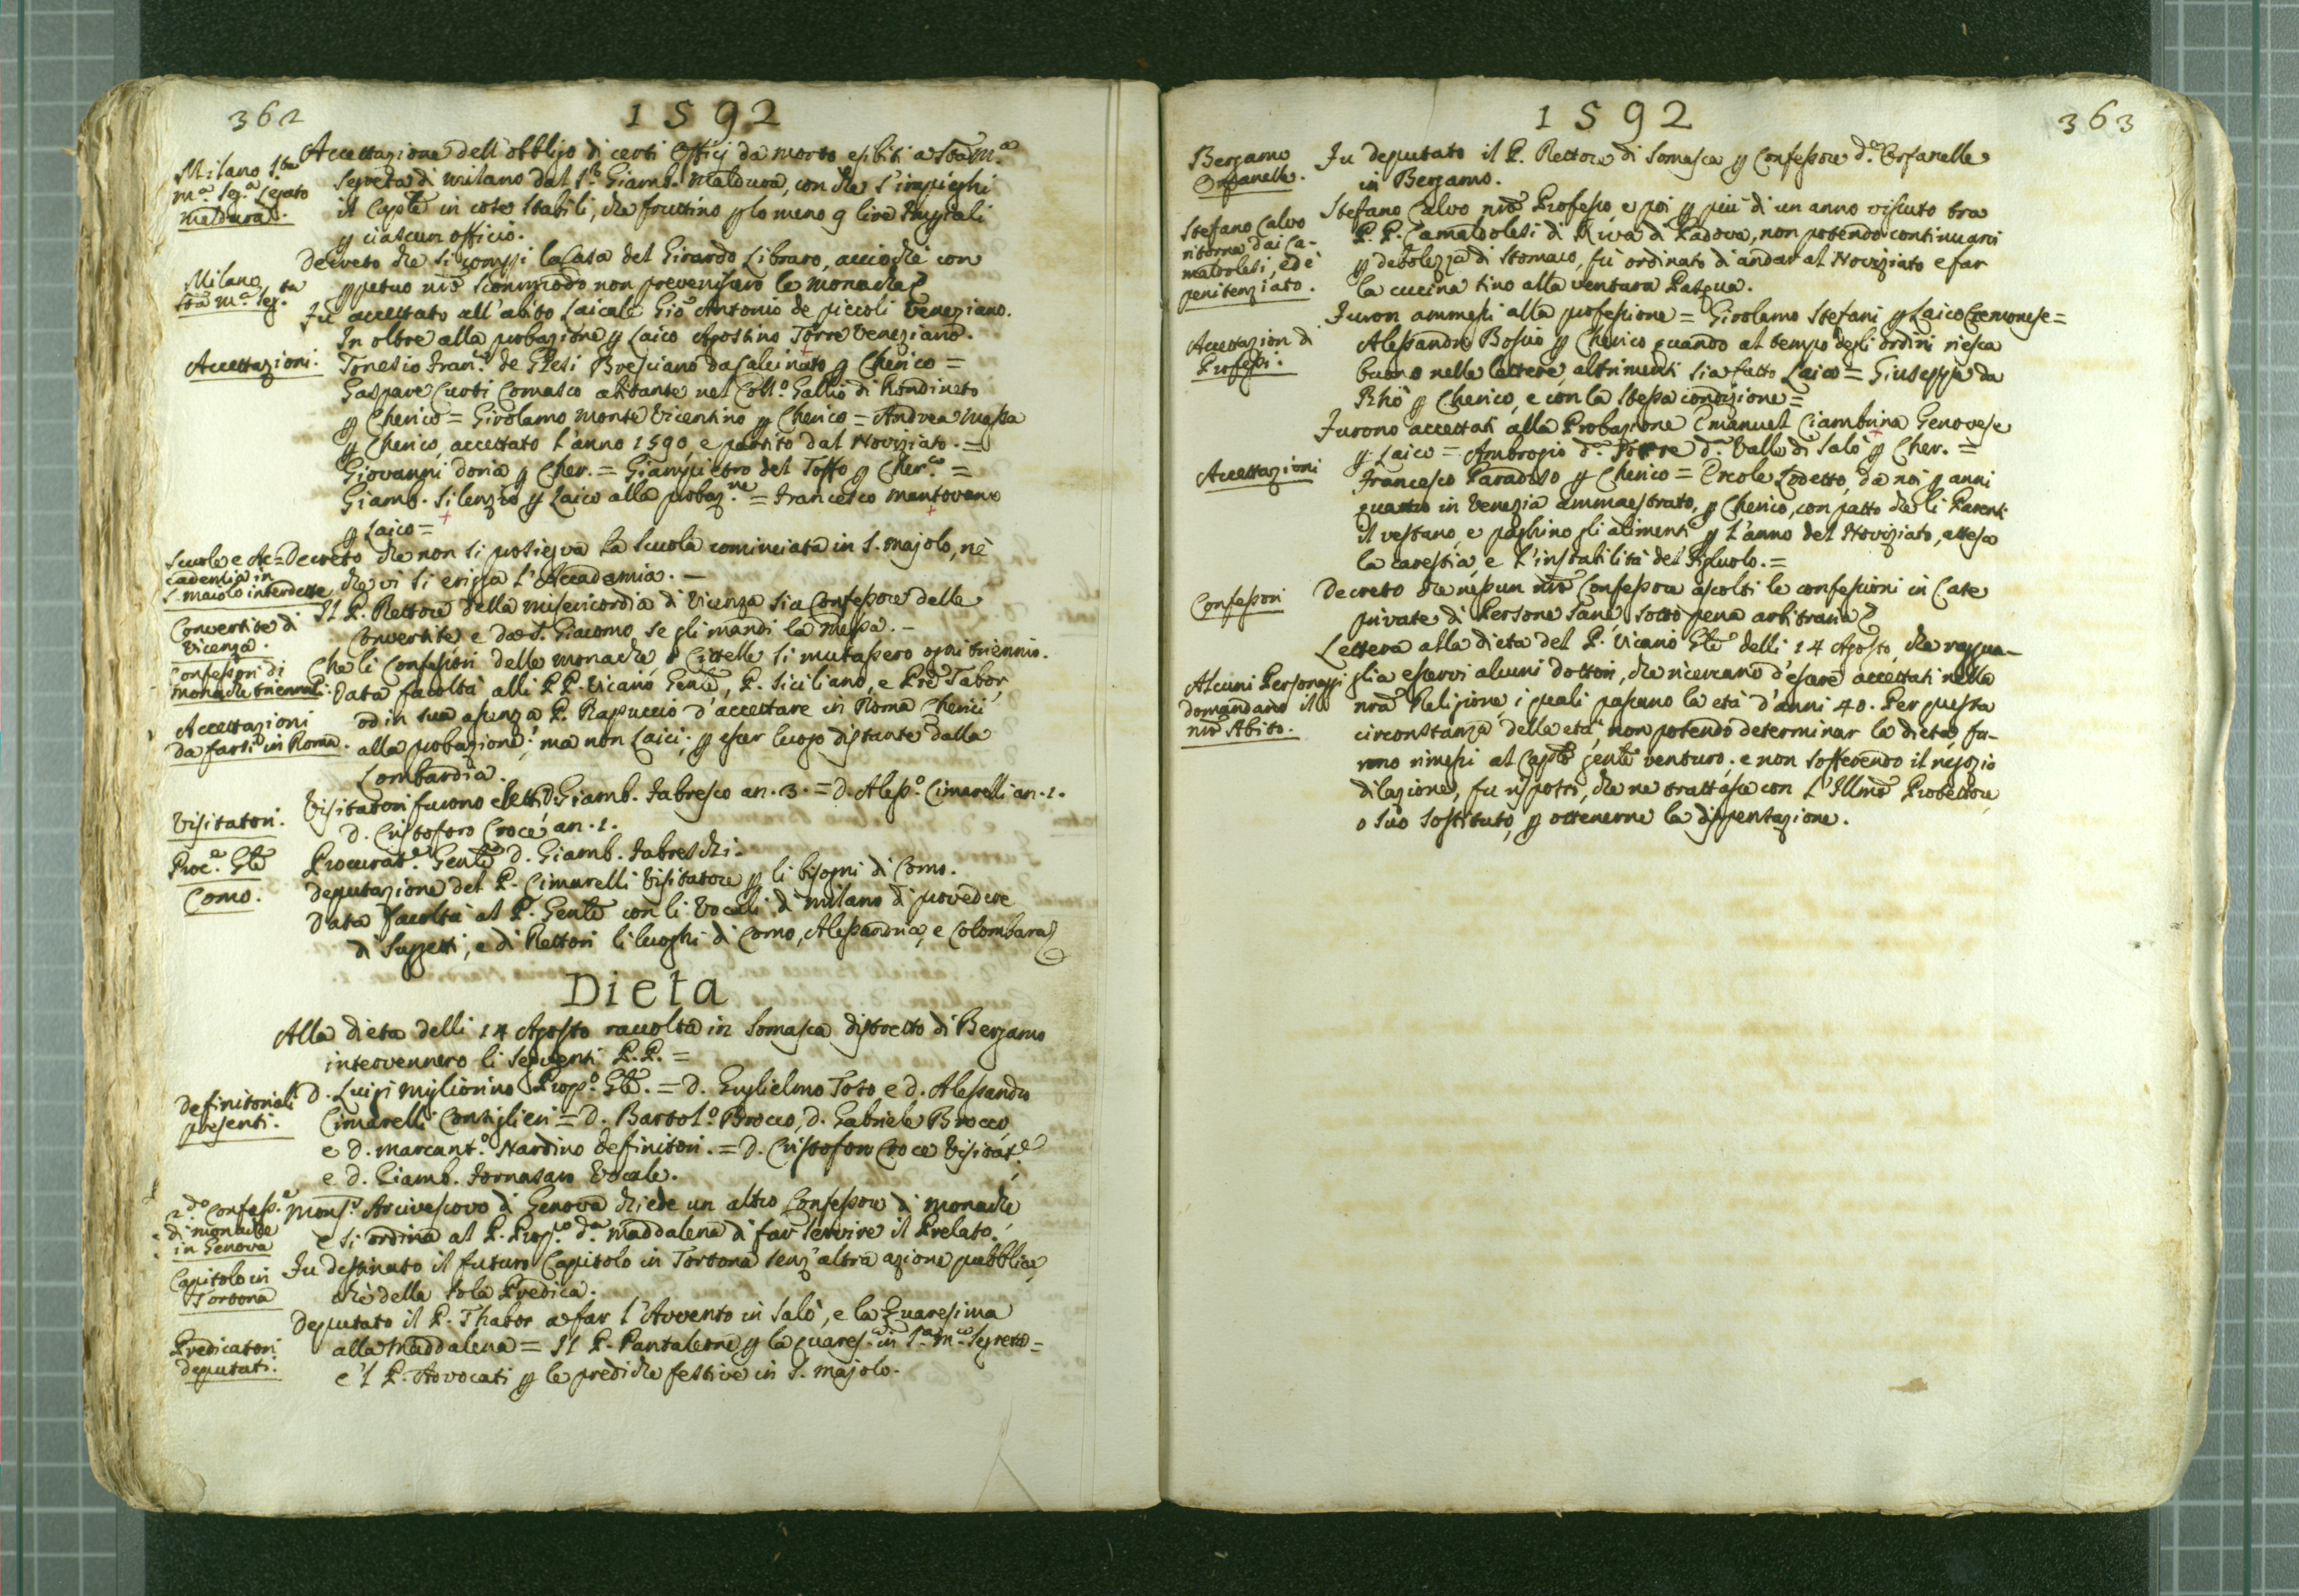 362
1592
Milano S.ta
M.a Seg.a Legato
Maldura.
Accettazione dell'obbligo di certi Officj da morto esibiti a Sta M.a
Segreta di Milano dal S.r Giamb. Maldura, con che s'impieghi
il Capitle in cose stabili, che fruttino plo meno 9 lire Impiali
p ciascun officio.
Milano
Sta M.a Seg.ta
Decreto che si compi la Casa del Girardo Libraro, acciochè con
ppetuo nro scommodo non prevenissero le Monache
Accettazioni.
Fu accettato all'abito Laicale Gio Antonio de piccoli Veneziano.
In oltre alla probazione p Laico Agostino Torre Veneziano.
Tonesio Fran.co de Ghesi Bresciano da Calcinato p Cherico =
Gaspare Curti Comasco abitante nel Coll.o Gallio di Rondineto
p Cherico = Girolamo Monte Vicentino p Cherico = Andrea Massa
p Cherico, accettato l'anno 1590, e partito dal Noviziato. =
Giovanni Doria p Cher. = Giampietro del Toffo p Cher.co =
Giamb. Silenzio p Laico alla probaz.ne = Francesco Mantovano
p Laico =
Scuole e Ac=
cademia in
S. Maiolo interdette
Decreto che non si prosiegva la Scuola cominciata in S. Majolo, nè
che vi si erigga l'Accademia. -
Convertite di
Vicenza.
Il P. Rettore della Misericordia di Vicenza sia Confessore delle
Convertite e da S. Giacomo se gli mandi la Messa. -
Confessori di
Monache triennali.
Che li Confessori delle Monache, o Cittelle si mutassero ogni triennio.
Accettazioni
da farsi in Roma.
Data facoltà alli P.P. Vicario Genle, P. Siciliano, e Pre Tabor,
od in sua assenza P. Rapuccio d'accettare in Roma Cherici
alla probazione; ma non Laici; p esser luogo distante dalla
Lombardia.
Visitatori.
Visitatori furono eletti D. Giamb. Fabresco an. 3. = D. Aless.o Cimarelli an. 2.
D. Cristoforo Croce, an. 1.
Proc.e Gle
Procurat.e Genle D. Giamb. Fabreschi.
Como.
Deputazione del P. Cimarelli Visitatore p li bisogni di Como.
Data facoltà al P. Genle con li Vocali di Milano di provedere
di Suggetti, e di Rettori li luoghi di Como, Alessandria, e Colombara
Dieta
Alla Dieta delli 14 Agosto raccolta in Somasca distretto di Bergamo
intervennero li seguenti P.P. =
Definitoriali
presenti.
D. Luigi Migliorino Prop.o Gle. = D. Guglielmo Toso, e D. Alessandro
Cimarelli Consiglieri = D. Bartol.o Brocco, D. Gabriele Brocco,
e D. Marcant.o Nardino Definitori. = D. Cristoforo Croce Visitat.e
e D. Giamb. Fornasaro Vocale.
2.do Confess.e
di monache
in Genova
Mons.r Arcivescovo di Genova chiede un altro Confessore di Monache
e si ordina al P. Prop.to d.a Maddalena di far servire il Prelato.
Capitolo in
Tortona
Fu destinato il futuro Capitolo in Tortona senz'altra azione pubblica,
che della sola Predica.
Predicatori
deputati.
Deputato il P. Thabor a far l'Avvento in Salò, e la Quaresima
alla Maddalena = Il P. Pantaleone p la quares. in S.a M.a Segreta =
e 'l P. Avvocati p le prediche festive in S. Majolo.
1592
363
Bergamo
Orfanelle.
Fu deputato il P. Rettore di Somasca p Confessore d.e Orfanelle
in Bergamo.
Stefano Calvo
ritorna dai Ca-
maldolesi, ed è
penitenziato.
Stefano Calvo nro Professo, e poi p più di un anno vissuto tra
P.P. Camaldolesi di Riva di Padova, non potendo continuarvi
p debolezza di Stomaco, fu ordinato di andar al Noviziato e far
la cucina sino alla ventura Pasqua.
Accettazion di
Professi.
Furon ammessi alla professione = Girolamo Stefani p Laico Cremonese =
Alessandro Boscio p Cherico quando al tempo degli ordini riesca
buono nelle lettere, altrimenti sia fatto Laico = Giuseppe da
Rhò p Cherico, e con la stessa condizione =
Accettazioni
Furono accettati alla Probazione Emanuel Ciambrina Genovese
p Laico = Ambrogio d.o Torre d.a Valle di Salò p Cher. =
Francesco Paradoso p Cherico = Ercole Lodetto, da noi p anni
quattro in Venezia ammaestrato, p Cherico, con patto che li Parenti
il vestano, e paghino gli alimenti p l'anno del Noviziato, attesa
la carestia, e l'instabilità del Figliuolo. =
Confessori
Decreto che nessun nro Confessore ascolti le confessioni in Case
private di Persone sane sotto pena arbitraria
Alcuni Personaggi
domandano il
nro Abito.
Lettera alla Dieta del P. Vicario Gle delli 14 Agosto, che raggua-
glia esservi alcuni dottori, che ricercano d'essere accettati nella
nra Religione, i quali passano la età d'anni 40. Per questa
circonstanza della età, non potendo determinar la dieta, fu-
rono rimessi al Capitlo genle venturo; e non sofferendo il negozio
dilazione, fu risposto, che ne trattasse con l'Illmo Protettore
o suo Sostituto, p ottenerne la dispensazione.